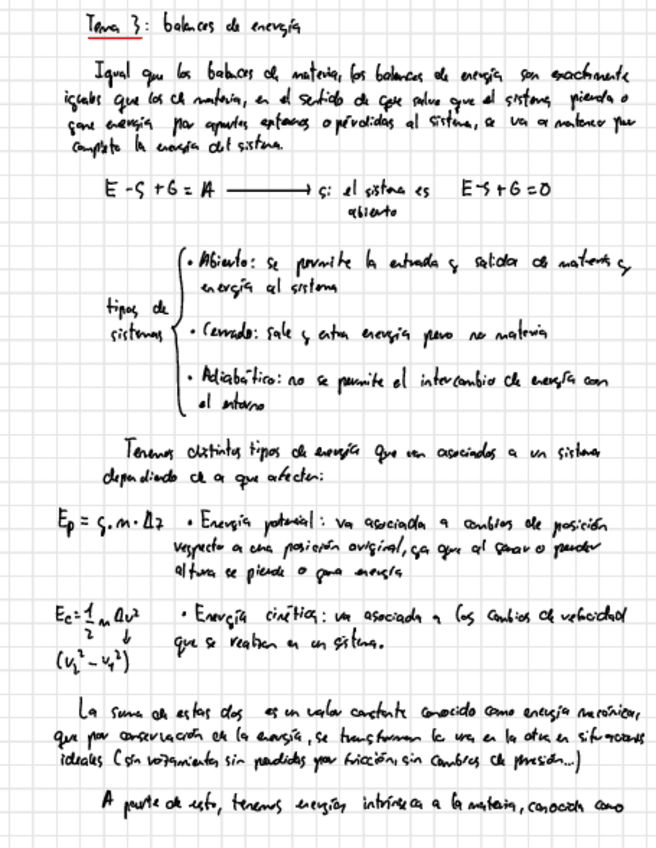 Tema 3: balances de energía
Igual que los balances de materia, los balances de energía son exactamente
iguales que los de materia, en el sentido de que salvo que el sistema pierda o
gane energía por aportes externos o pérdidas al sistema, se va a mantener por
completo la energía del sistema.
E - S + G = A ⟶ si el sistema es abierto E-S+G=0
tipos de sistemas
• Abierto: se permite la entrada y salida de materia y
energía al sistema
• Cerrado: sale y entra energía pero no materia
• Adiabático: no se permite el intercambio de energía con
el entorno
Tenemos distintos tipos de energía que van asociados a un sistema
dependiendo de a que afecten:
Ep = g·m·Δz • Energía potencial: va asociada a cambios de posición
respecto a una posición original, ya que al ganar o perder
altura se pierde o gana energía
Ec = 1/2 m Δv² • Energía cinética: va asociada a los cambios de velocidad
↓
(v₂² - v₁²) que se realizan en un sistema.
La suma de estas dos es un valor constante conocido como energía mecánica,
que por conservación de la energía, se transforman la una en la otra en situaciones
ideales (sin rozamiento, sin perdidas por fricción, sin cambios de presión...)
A parte de esto, tenemos energías intrínseca a la materia, conocida como